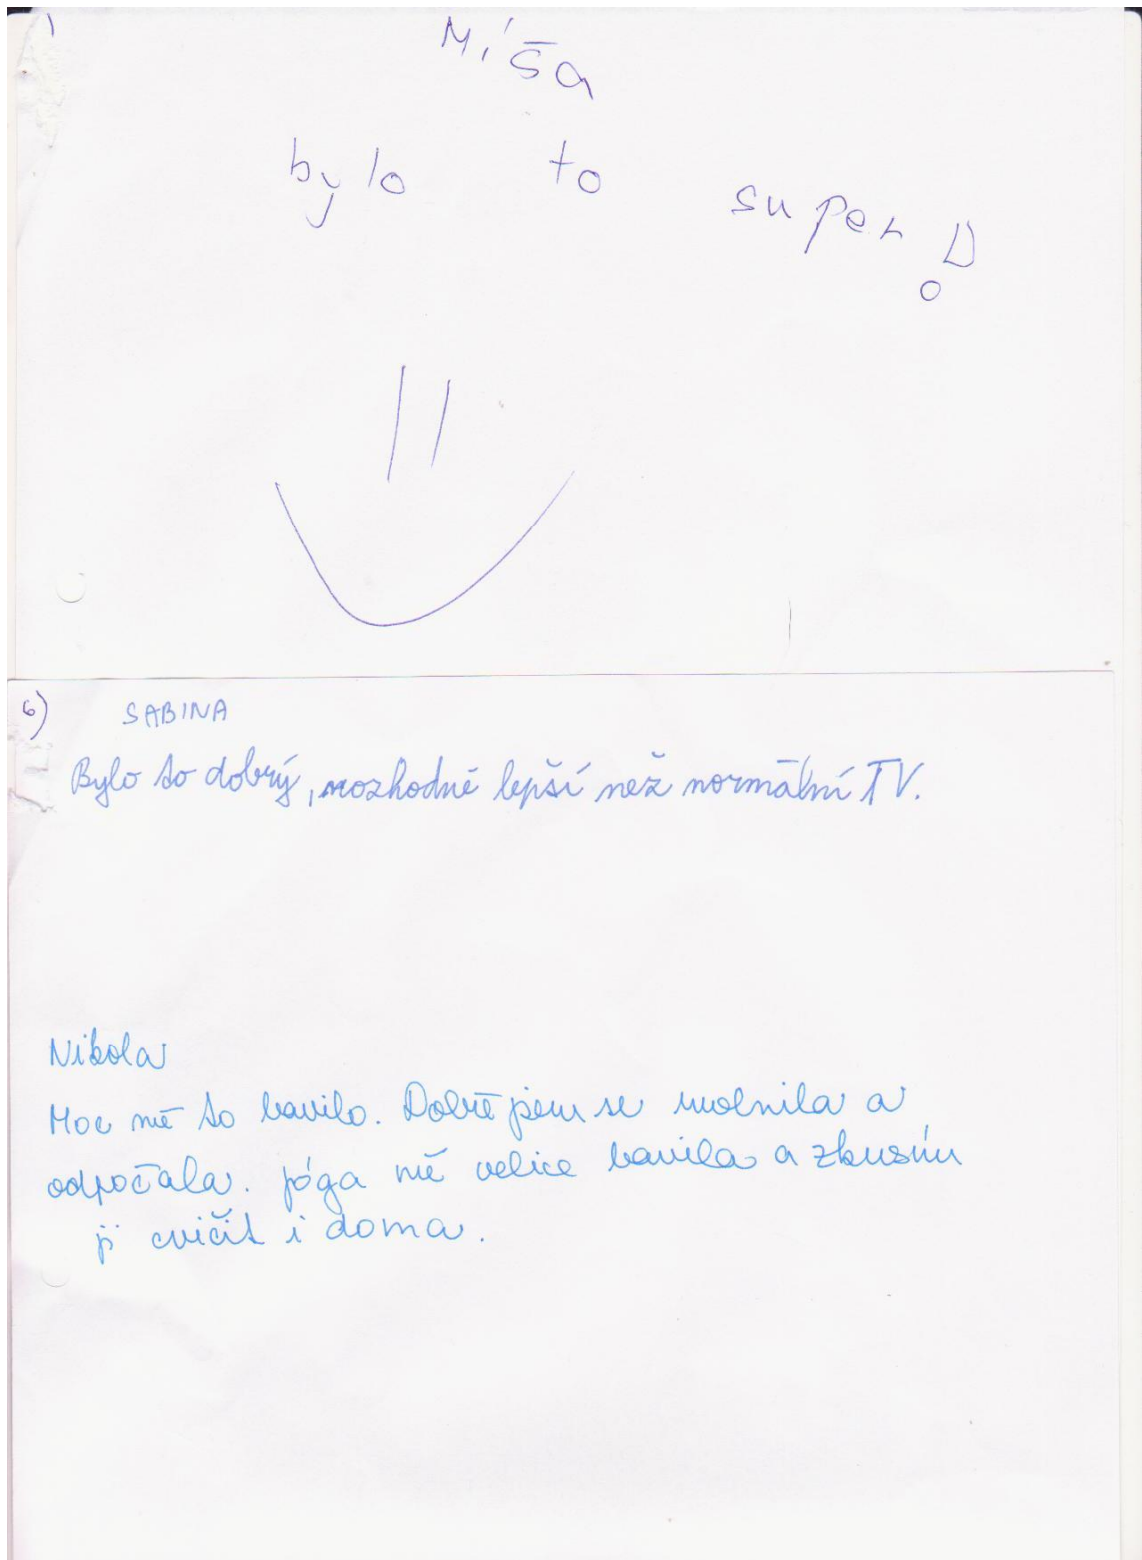 Míša
bylo to super!
6)
SABINA
Bylo to dobrý, rozhodně lepší než normální TV.
Nikola
Moc mě to bavilo. Dobře jsem se uvolnila a
odpočala. jóga mě velice bavila a zkusím
ji cvičit i doma.